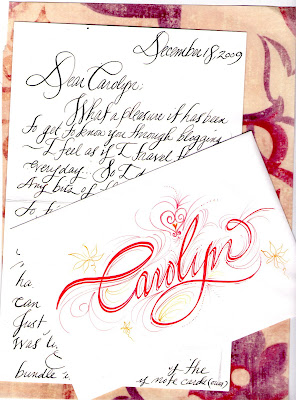 December 18, 2009
Dear Carolyn;
What a pleasure it has been
to get to know you through blogging
~ I feel as if I travel
everyday. So I
Any bits of
to
Carolyn
ha
can
Just
was
bundle
of the
of note cards (over)